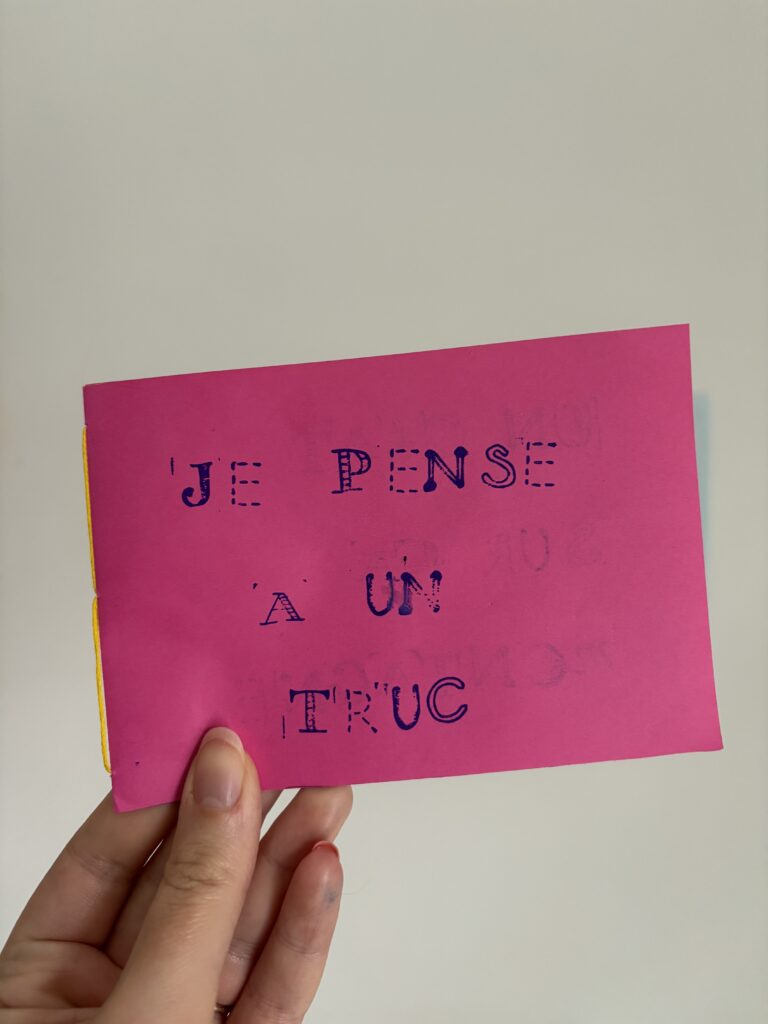 JE PENSE
A UN
TRUC